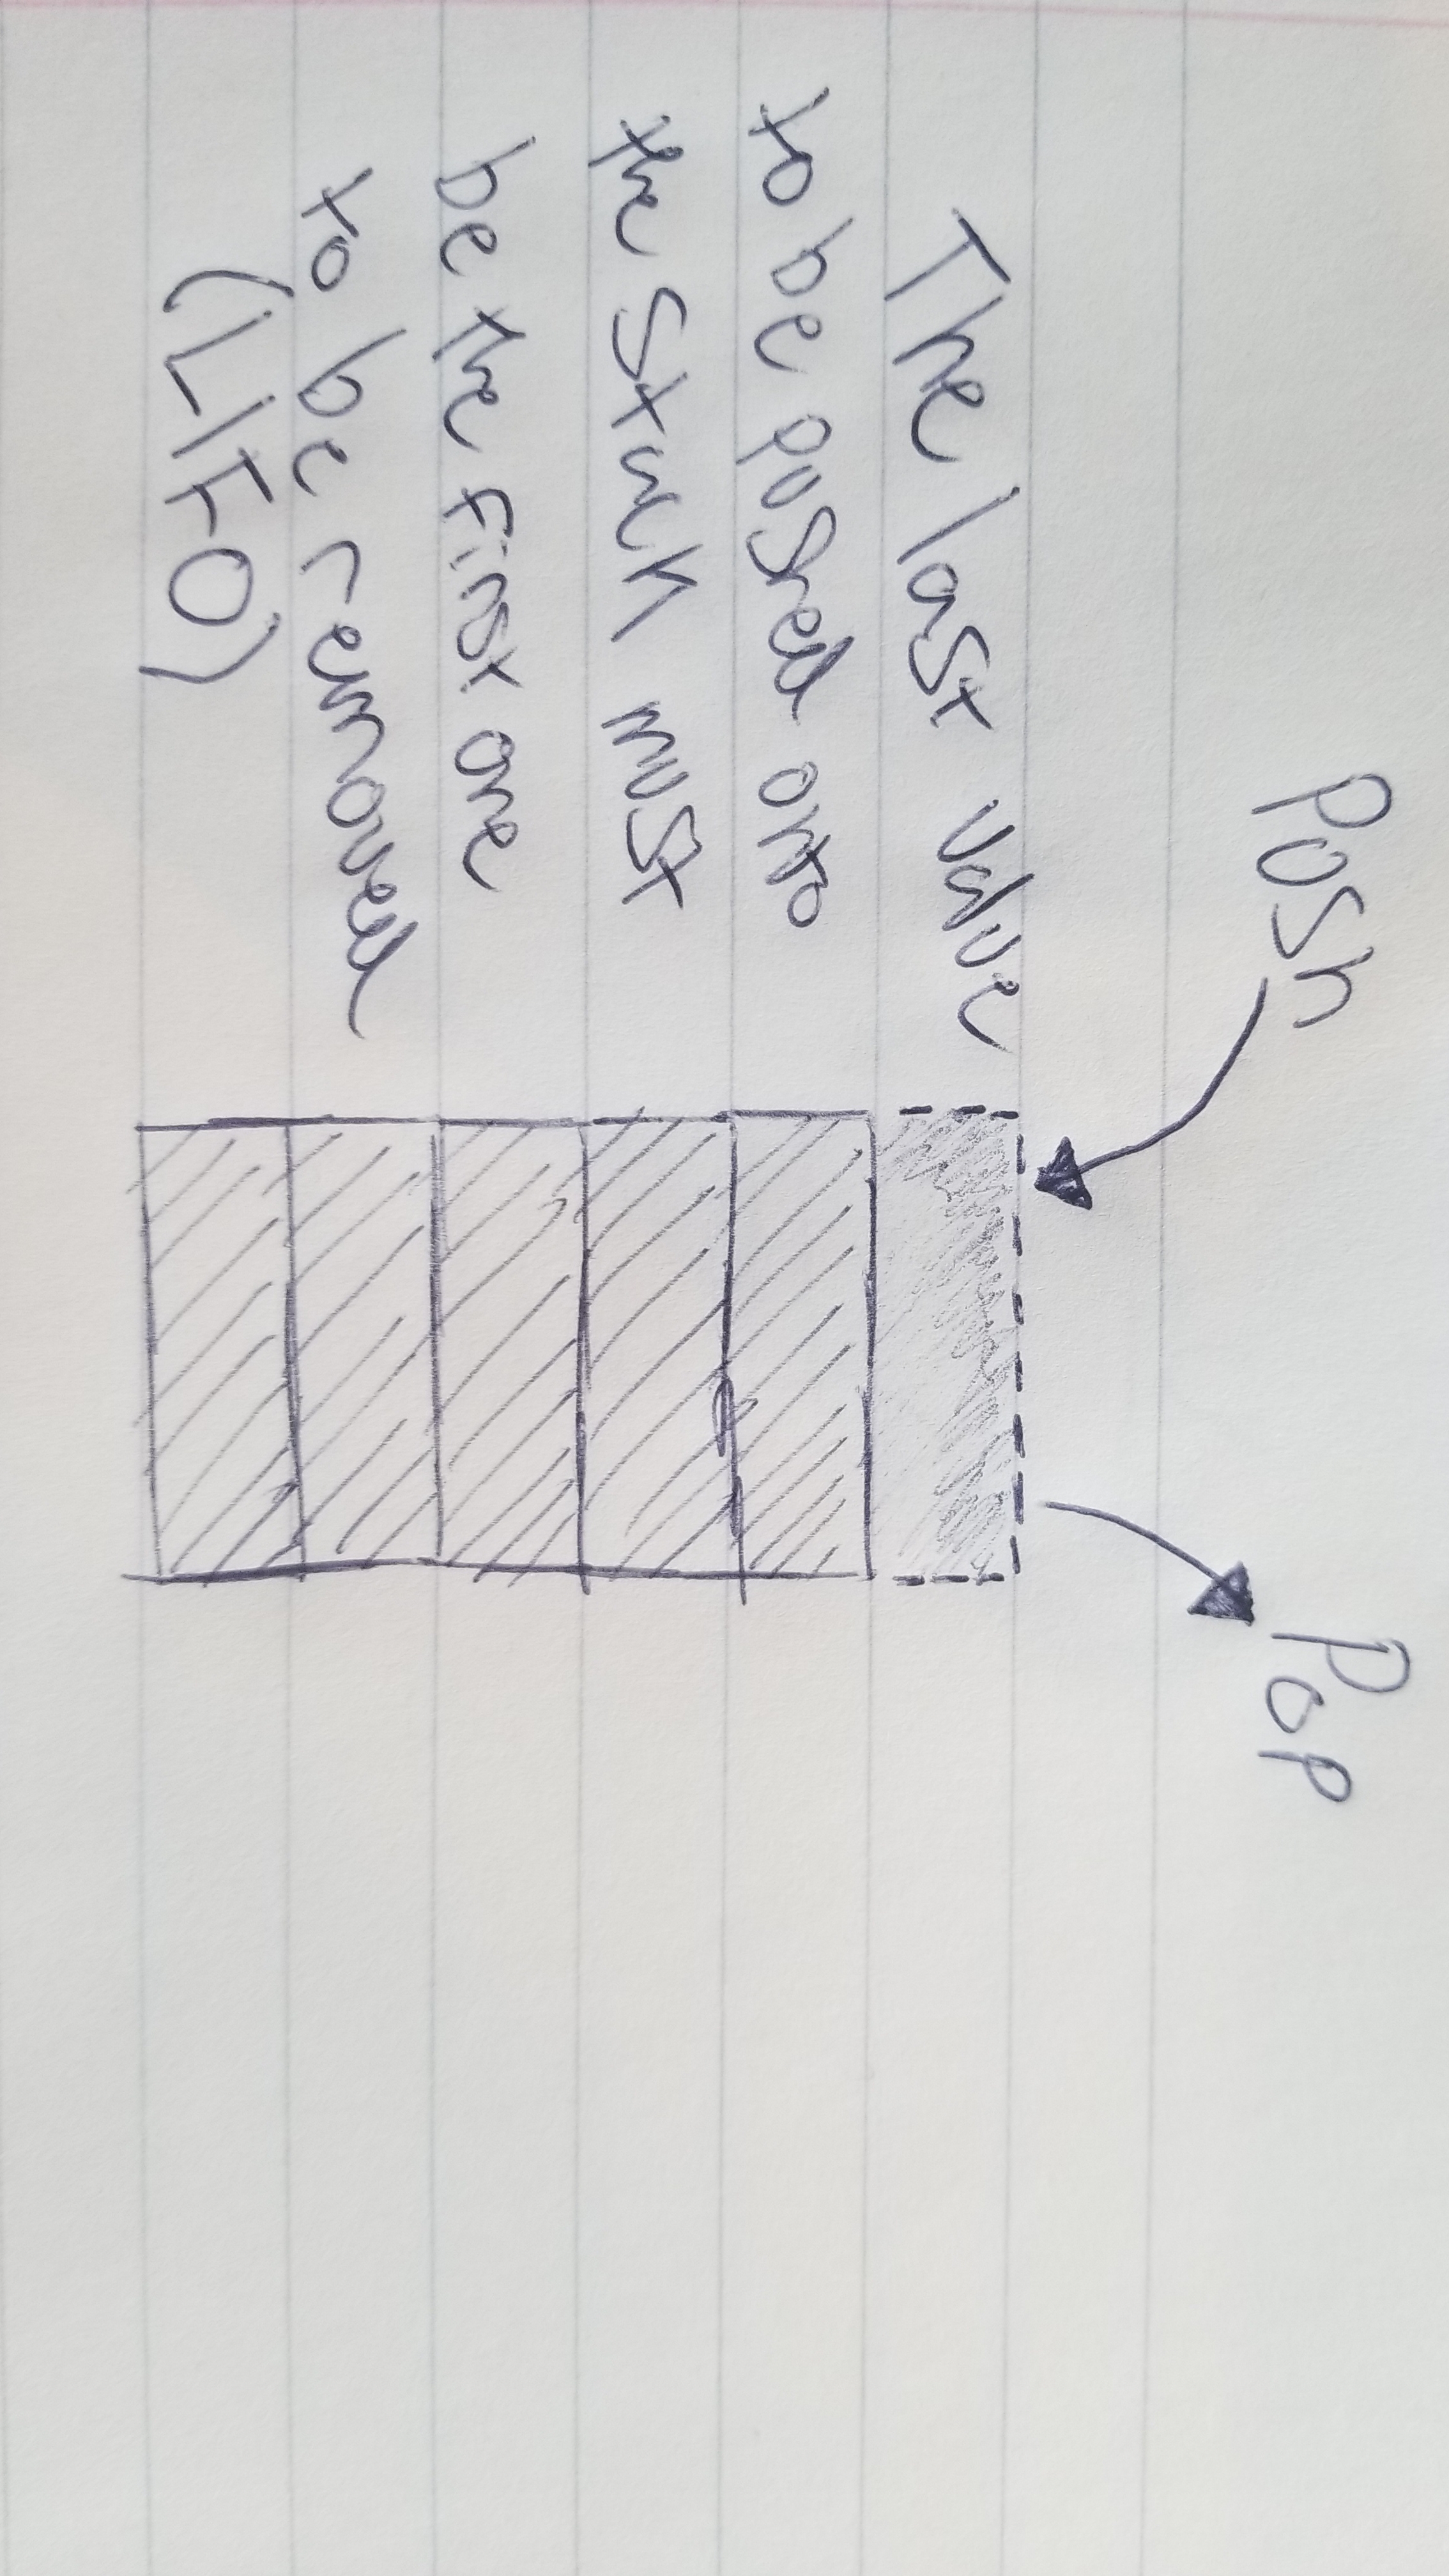 Push
Pop
The last value
to be pushed onto
the Stack must
be the first one
to be removed
(LIFO)